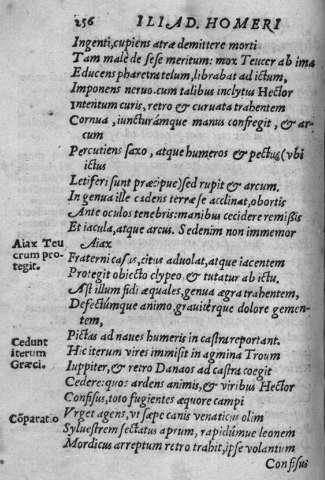 256 ILIAD. HOMERI
Ingenti, cupiens atræ demittere morti
Tam malè de sese meritum: mox Teucer ab ima
Educens pharetra telum, librabat ad ictum,
Imponens neruo. cum talibus inclytus Hector
Intentum curis, retro & curuata trahentem
Cornua, iuncturámque manus confregit, & ar-
cum
Percutiens saxo, atque humeros & pectus (vbi
ictus
Letiferi sunt præcipue) sed rupit & arcum.
In genua ille cadens terræ se acclinat, obortis
Ante oculos tenebris: manibus cecidere remissis
Et iacula, atque arcus. Sed enim non immemor
Aiax
Aiax Teu
crum pro-
tegit.
Fraterni casus, citus aduolat, atque iacentem
Protegit obiecto clypeo & tutatur ab ictu.
Ast illum fidi æquales, genua ægra trahentem,
Defectúmque animo, grauitérque dolore gemen-
tem,
Pictas ad naues humeris in castra reportant.
Cedunt
iterum
Græci.
Hic iterum vires immisit in agmina Troum
Iuppiter, & retro Danaos ad castra coegit
Cedere: quos ardens animis, & viribus Hector
Confisus, toto fugientes æquore campi
Cōparatio
Vrget agens, vt sæpe canis venaticus olim
Syluestrem sectatus aprum, rapidúmue leonem
Mordicus arreptum retro trahit, ipse volantum
Confisus